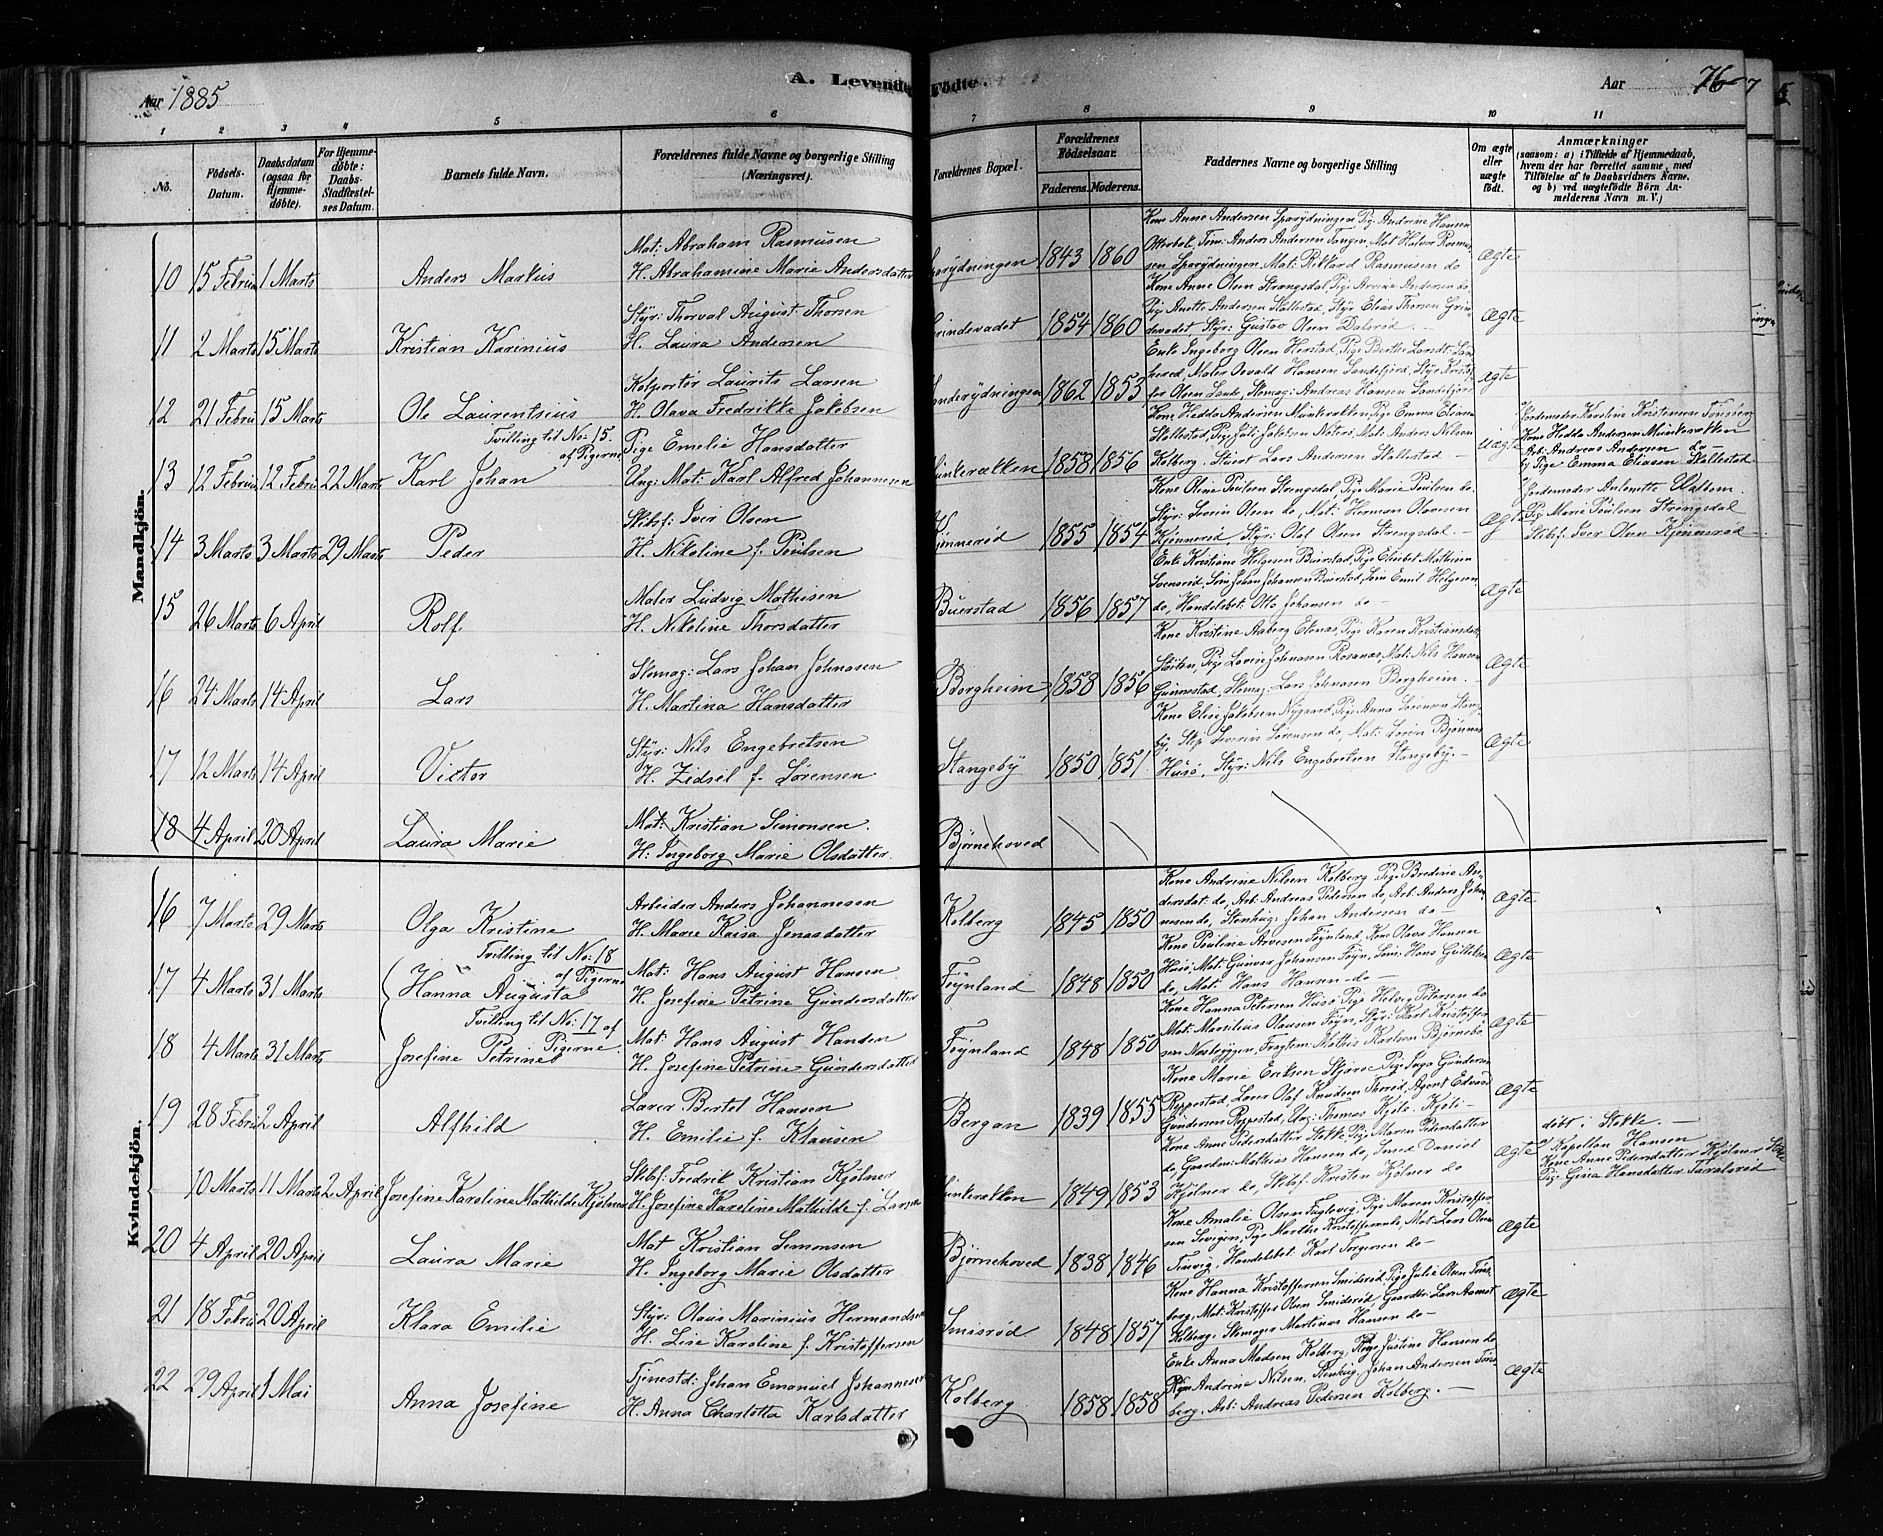 Aar 1885
A. Levende Fødte.
Aar 76
1 2 3 4 5 6 7 8 9 10 11
No.
Fødsels-Datum.
Daabsdatum (ogsaa for Hjemmedøbte).
For Hjemmedøbte: Daabs-Stadfæstelses Datum.
Barnets fulde Navn.
Forældrenes fulde Navne og borgerlige Stilling (Næringsvei).
Forældrenes Bopæl.
Forældrenes Fødselsaar.
Faderens. Moderens.
Faddernes Navne og borgerlige Stilling
Om ægte eller uægte født.
Anmærkninger
(saasom: a) i Tilfælde af Hjemmedaab,
hvem der har forrettet samme, med
Tilføielse af to Daabsvidners Navne.
og b) ved uægtefødte Børn Anmelderens Navn m. V.)
Mandkjøn.
10 15 Februar 1 Marts Anders Markus
Mat: Abraham Rasmusen
H. Abrahamine Marie Andersdatter
1843 1860
Kone Anne Andersen Sparydningen Pige Andrine Hansen
Otterbek, Tøm: Anders Andersen Tangen, Mat Halvor Rasmusen Sparydningen, Mat: Rikkard Rasmusen do
Ægte
11 2 Marts 15 Marts Kristian Karinius
Styr: Thorval August Thorsen
H. Laura Andersen
Grindevadet 1854 1860
Kone Anne Olsen Strengsdal, Pige Arvine Andersen do,
Pige Anette Andersen Skallestad, Styr Elias Thorsen Grindevadet Styr: Gustav Olsen Dalerød
Ægte
12 21 Februar 15 Marts Ole Laurentsius
Kolportør Laurits Larsen
H. Olava Fredrikke Jakobsen
1862 1853
Enke Ingeborg Olsen Herstad, Pige Berthe Larsdt.
Maler Osvald Hansen Sandefjord, Styr. Kristoffer Olsen, Skomag: Andreas Hansen Sandefjord
Ægte
Tvilling til No: 15 af Pigerne
13 12 Februar 12 Februar 22 Marts Karl Johan
Pige Emelie Hansdatter
Ung: Mat: Karl Alfred Johannesen
Munkerækken 1858 1856
Kone Hedda Andersen Munkerækken, Pige Emma Eliasen
Skallestad, Pige Juli Jakobsen Nøterø, Mat: Anders Nilsen
Kolberg. Stuert Lars Andersen Skallestad.
uægte
Jordemoder Karoline Kristensen Tønsberg
Kone Hedda Andersen Munkerækken
Arb: Andreas Andersen do
b) Pige Emma Eliasen Skallestad
14 3 Marts 3 Marts 29 Marts Peder
Skibsf: Iver Olsen
H. Nikoline f. Poulsen
Kjønnerød 1855 1854
Kone Oline Poulsen Strengsdal, Pige Marie Poulsen do.
Styr: Severin Olsen do, Mat: Herman Olavesen
Kjønnerød Styr: Olaf Olsen Strengsdal.
Ægte
Jordemoder Antonette Wattom.
Pige Marie Poulsen Strengsdal
Skibsf: Iver Olsen Kjønnerød
15 26 Marts 6 April Rolf
Maler Ludvig Mathisen
H. Nikoline Thorsdatter
Buerstad 1856 1857
Enke Kristiane Helgesen Buerstad, Pige Elisebet Mathisen
Soensrød, Søm: Johan Johansen Buerstad, Søm Emil Helgesen
do, Handelsbet: Otto Johansen do
Ægte
16 24 Marts 14 April Lars
Skomag: Lars Johan Johnasen
H. Martina Hansdatter
Borgheim 1858 1856
Kone Kristine Aaberg Elenæs, Pige Karen Kristiansdt.
Støiten, Pige Lovise Johnasen Rosanæs, Mat: Nils Hansen
Gunnestad, Skomag: Lars Johnasen Borgheim.
Ægte
17 12 Marts 14 April Victor
Styr: Nils Engebretsen
H. Zidsel f. Sørensen
Stangeby 1850 1851
Kone Elise Jakobsen Nygaard, Pige Anna Sørensen Stangeby, Skip Severin Sørensen do, Mat: Søren Bjønnes
Husø, Styr: Nils Engebretsen Stangeby.
Ægte
18 4 April 20 April Laura Marie
Mat: Kristian Simonsen.
H: Ingeborg Marie Olsdatter.
Bjørnehoved
Kvindekjøn.
16 7 Marts 29 Marts Olga Kristine
Arbeider Anders Johannesen
H. Marie Kaisa Jonasdatter
Kolberg 1845 1850
Kone Andrine Nilsen Kolberg Pige Bredine Andersdat: do, Arb: Andreas Pedersen do, Arb: Anders Johannesen do, Stenhug: Johan Andersen do
Ægte
Tvilling til No: 18 af Pigerne
17 4 Marts 31 Marts Hanna Augusta
Mat: Hans August Hansen
H. Josefine Petrine Gundersdatter
Føynland 1848 1850
Kone Pouline Arvesen Føynland, Kone Olava Hansen
Husø, Mat: Gunvar Johansen Føyn, Søm: Hans Guttelsen
do, Mat: Hans Hansen do
Ægte
Tvilling til No: 17 af Pigerne.
18 4 Marts 31 Marts Josefine Petrine
Mat: Hans August Hansen
H. Josefine Petrine Gundersdatter
Føynland 1848 1850
Kone Hanna Petersen Husø Pige Helvig Petersen do
Mat: Marilius Olausen Føyn, Styr: Karl Kristoffersen Nesleyggen, Fragtem: Mathis Karlsen Bjørnebo
Ægte
19 28 Februar 2 April Alfhild
Lærer Bertel Hansen
H. Emilie f. Klausen
Bergan 1839 1855
Kone Marie Eriksen Skjerve Pige Inga Gundersen
Røppestad, Lærer Olaf Knudsen Thorød, Agent Edvard
Gundersen Røppestad, Ung: Thomas Kjølø. Kjøli
Ægte
10 Marts 11 Marts 2 April Josefine Karoline Mathilde Kjølner
Skibsf: Fredrik Kristian Kjølner
H. Josefine Karoline Mathilde f. Larsen
Munkerækken 1849 1853
Kone Anne Pedersdatter Stokke, Pige Maren Pedersdatter
do, Gaardm: Mathias Hansen do, Smed Daniel
Kjølner do, Skibsf. Kristen Kjølner do
Ægte
døbt i Stokke.
af Kapellan Hansen
Kone Anne Pedersdatter Kjølner Stokke
Pige Gina Hansdatter Tareløsrød
20 4 April 20 April Laura Marie
Mat Kristian Simonsen
H. Ingeborg Marie Olsdatter
Bjørnehoved 1838 1846
Kone Amalie Olsen Fuglevig, Pige Maren Kristoffersen Sevigen, Pige Marthe Kristoffersen do, Mat: Lars Olsen
Tenvig, Handelsbet: Karl Torgersen do
Ægte
21 18 Februar 20 April Klara Emilie
Styr: Olaus Marinius Hermandsen
H. Lise Karoline f. Kristoffersen
Smisrød 1848 1857
Kone Hanna Kristoffersen Smidsrød, Pige Julie Olsen Tønsberg, Mat: Kristoffer Olsen Smidsrød Gaardbr: Lars Aamot
Kolberg, Skomager Martinus Hansen do
Ægte
22 29 April 1 Mai Anna Josefine
Tjenestd: Johan Emanuel Johannesen
H. Anna Charlotta Karlsdatter
Kolberg 1858 1858
Enke Anna Madsen Kolberg, Pige Justine Hansen do
Kone Andrine Nilsen, Stenhug: Johan Andersen Tønsberg, Arb: Andreas Pedersen Kolberg.
Ægte